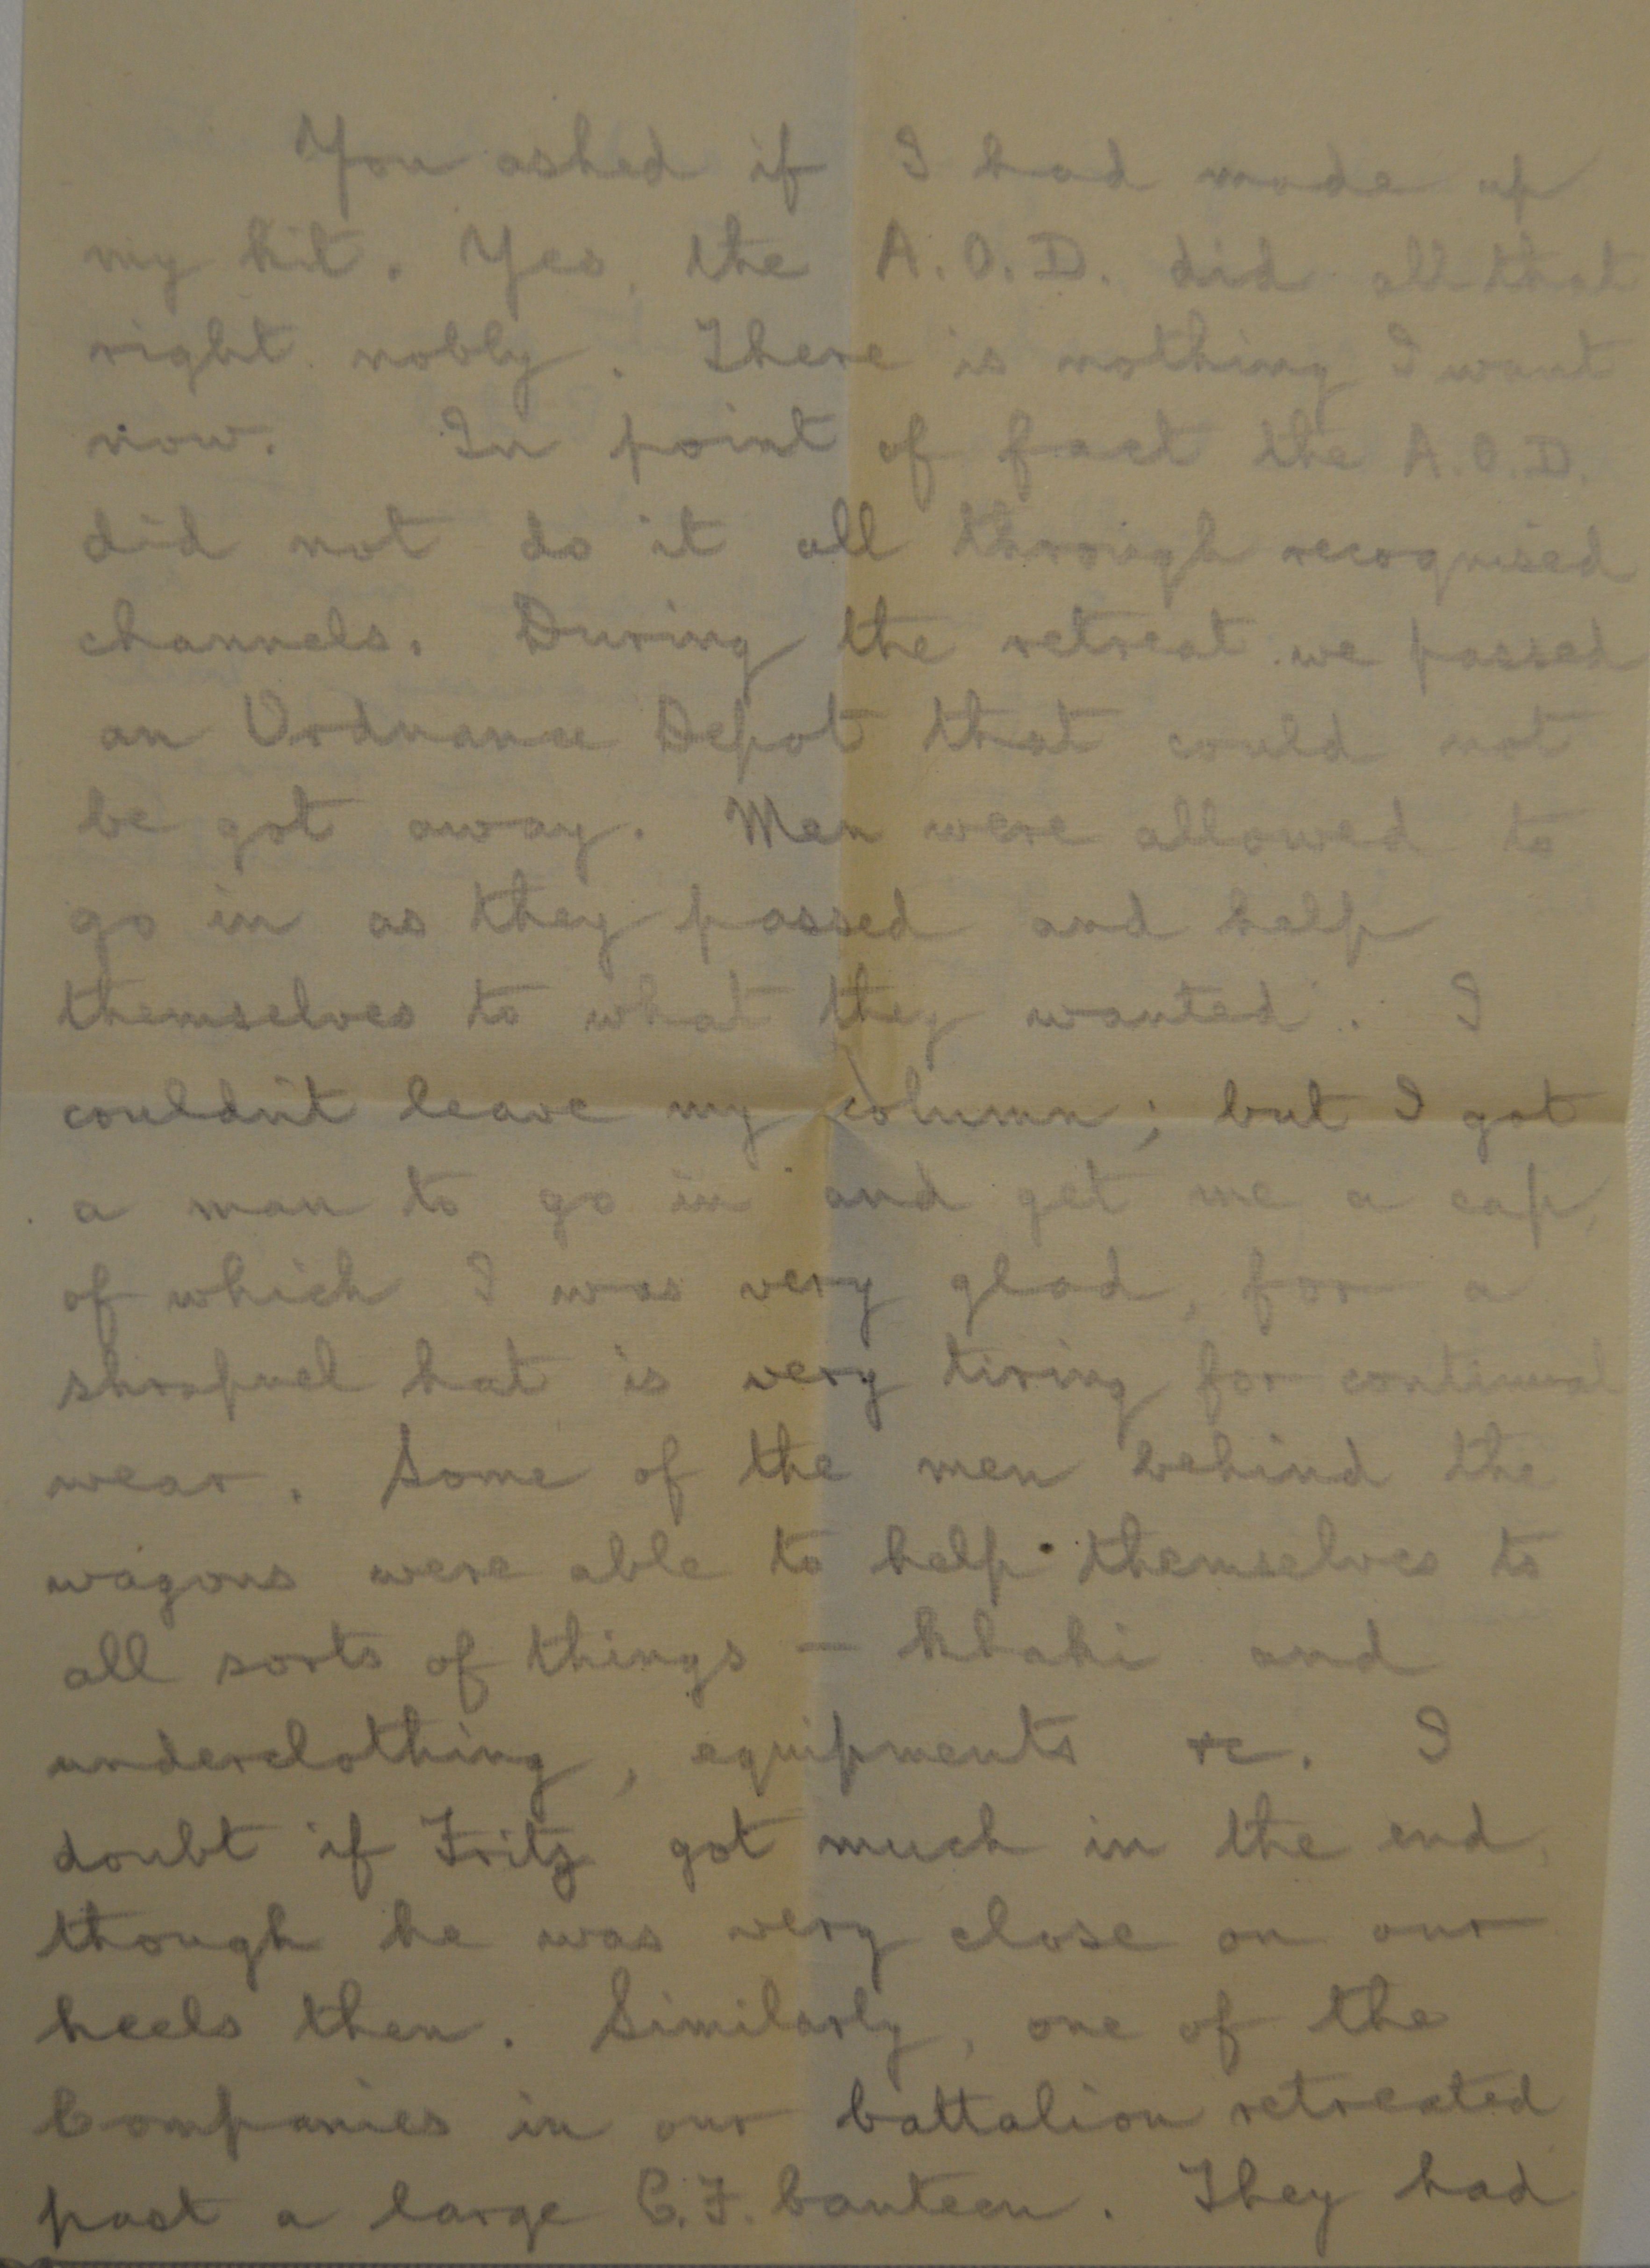 You asked if I had made up
my kit. Yes, the A.O.D. did all that
right nobly. There is nothing I want
now. In point of fact the A.O.D.
did not do it all through recognised
channels. During the retreat we passed
an Ordnance Depot that could not
be got away. Men were allowed to
go in as they passed and help
themselves to what they wanted. I
couldn't leave my column; but I got
a man to go in and get me a cap,
of which I was very glad, for a
shrapnel hat is very tiring for continual
wear. Some of the men behind the
wagons were able to help themselves to
all sorts of things — khaki and
underclothing, equipments &c. I
doubt if Fritz got much in the end,
though he was very close on our
heels then. Similarly, one of the
Companies in our battalion retreated
past a large E.F. Canteen. They had